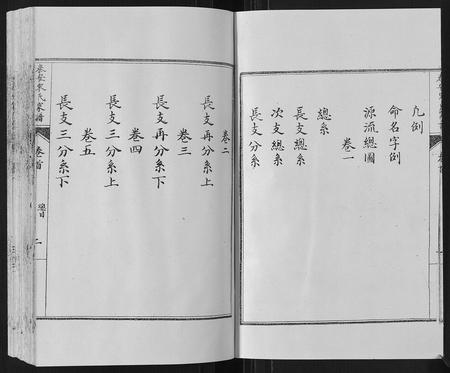 凡例
命名字例
源流總圖
卷一
總系
長支總系
次支總系
長支分系
卷二
長支再分系上
卷三
長支再分系下
卷四
長支三分系上
卷五
長支三分系下
宋氏家譜
卷首
總目
二